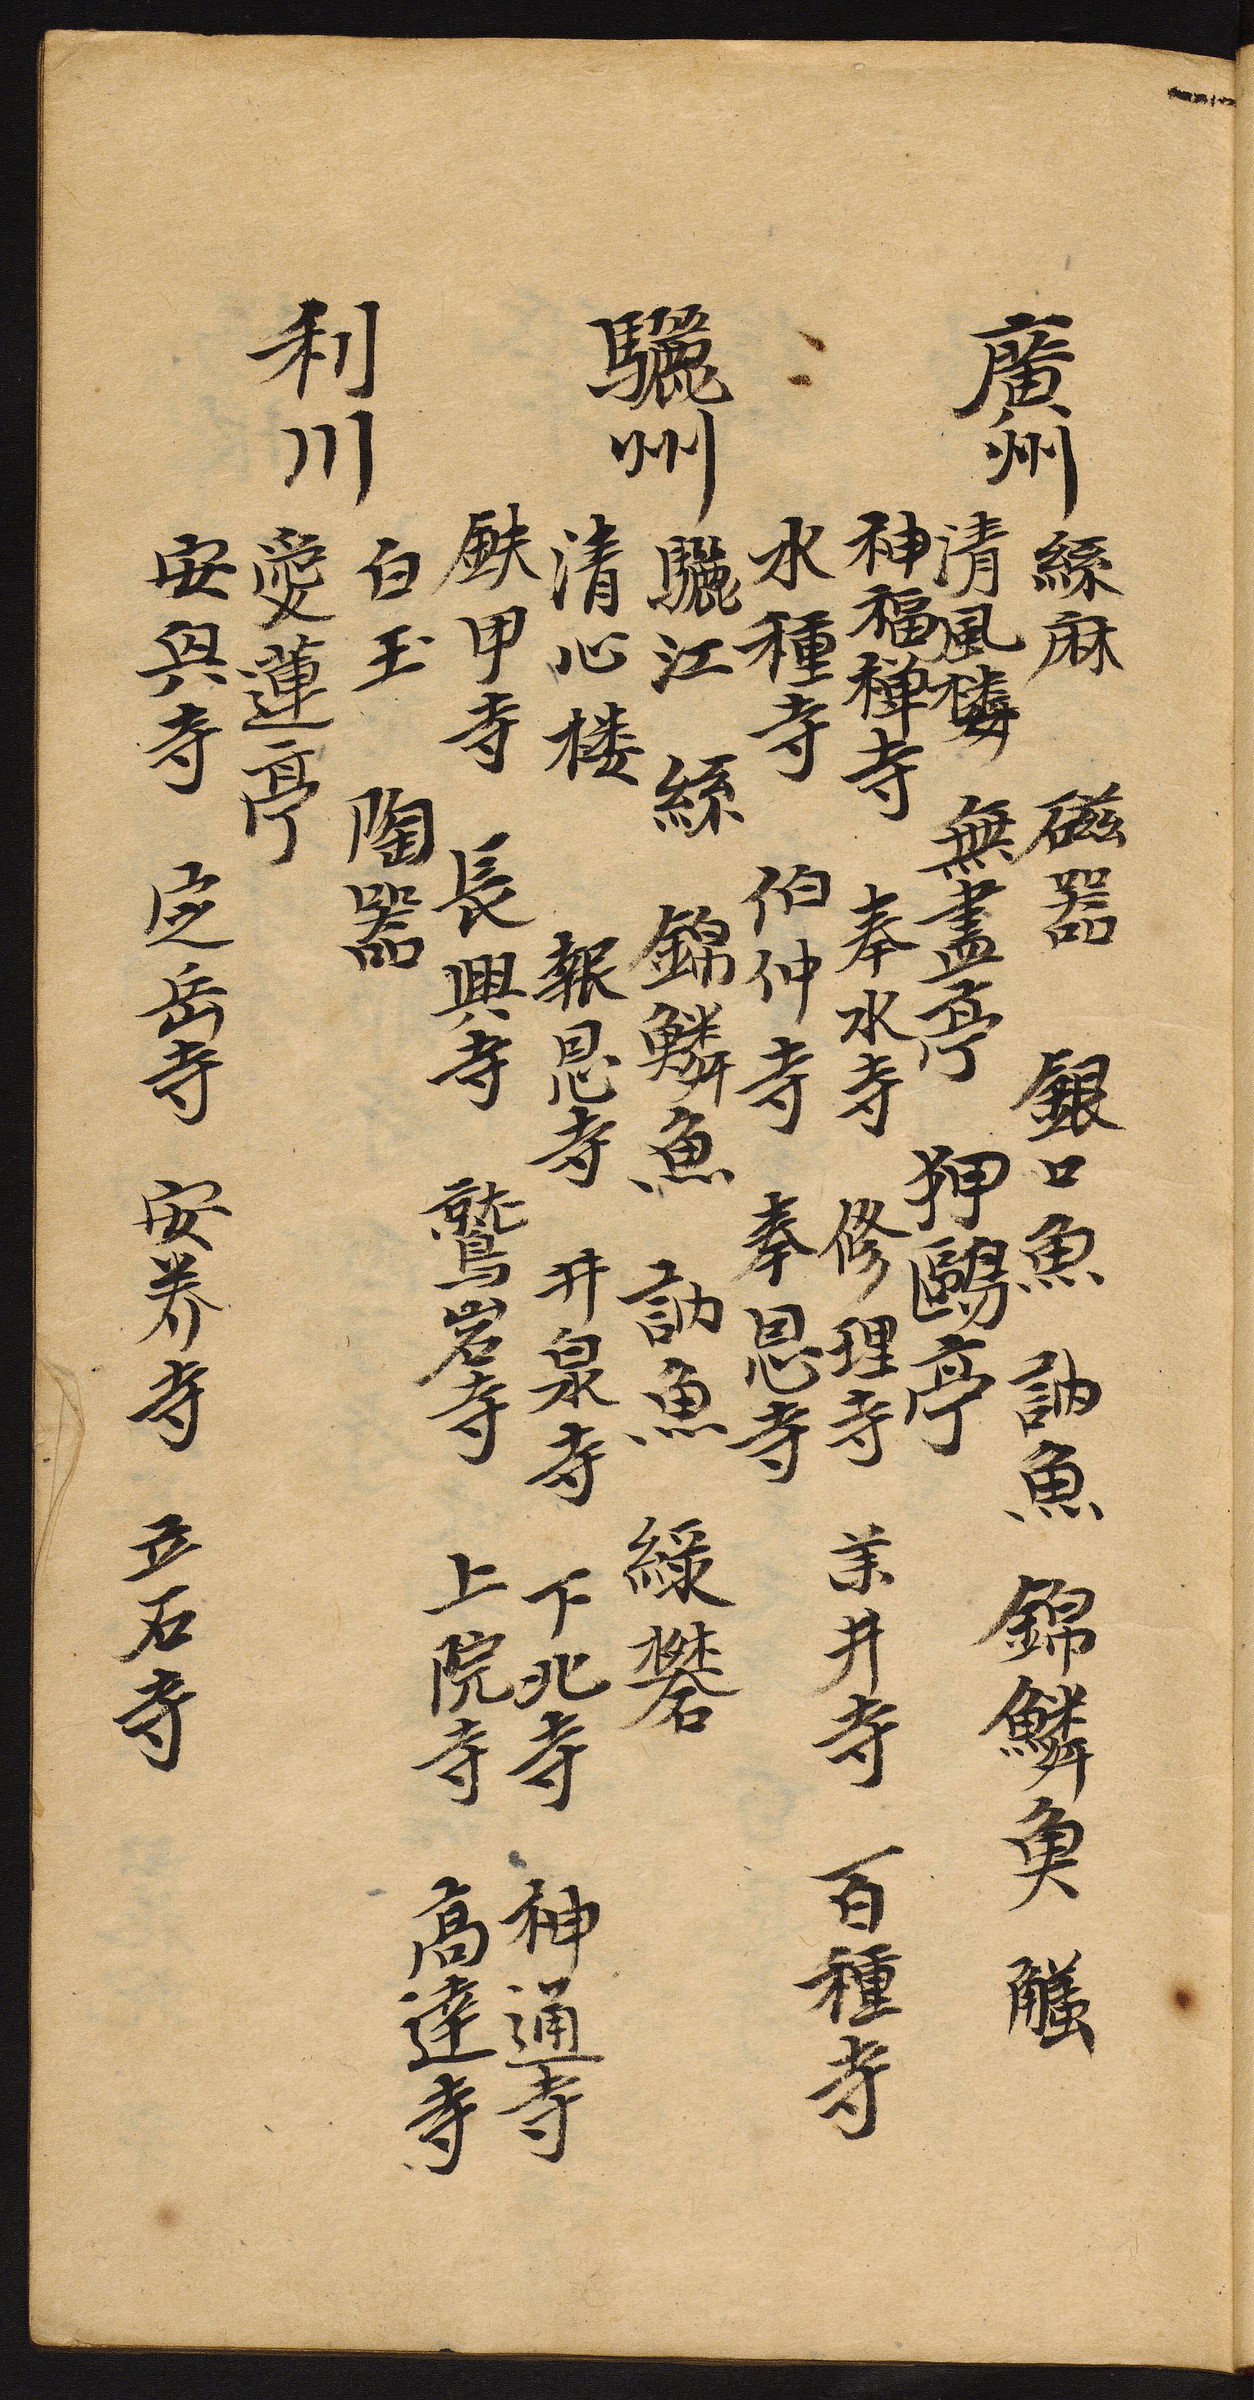 廣州
絲 麻 磁器 銀口魚 訥魚 錦鱗魚 蟹
清風樓 無盡亭 狎鷗亭
神福禅寺 奉水寺 修理寺 羊井寺 百種寺
水種寺 伯仲寺 奉恩寺
驪州
驪江 絲 錦鱗魚 訥魚 綠礬
清心楼 報恩寺 井泉寺 下北寺 神通寺
甲寺 長興寺 鷲岩寺 上院寺 高達寺
利川
白玉 陶器
愛蓮亭
安興寺 定岳寺 安养寺 立石寺